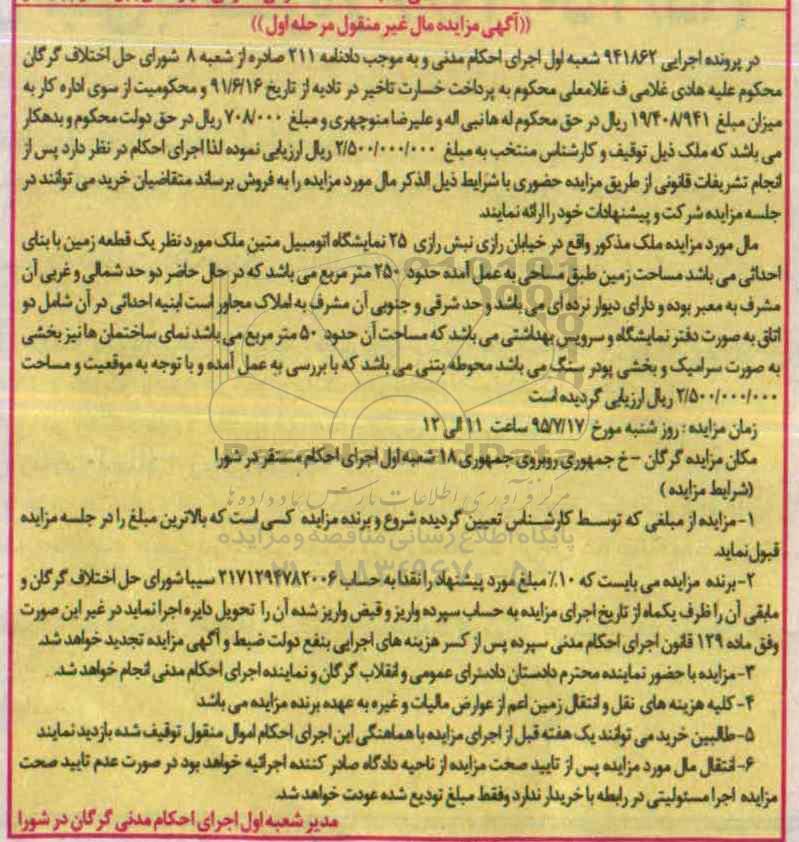 ((آگهی مزایده مال غیر منقول مرحله اول))
در پرونده اجرایی ۹۴۱۸۶۲ شعبه اول اجرای احکام مدنی و به موجب دادنامه ۲۱۱ صادره از شعبه ۸ شورای حل اختلاف گرگان
محکوم علیه هادی غلامی ف غلامعلی محکوم به پرداخت خسارت تاخیر در تادیه از تاریخ ۹۱/۶/۱۶ و محکومیت از سوی اداره کار به
میزان مبلغ ۱۹/۴۰۸/۹۴۱ ریال در حق محکوم له ها نبی اله و علیرضا منوچهری و مبلغ ۷۰۸/۰۰۰ ریال در حق دولت محکوم و بدهکار
می باشد که ملک ذیل توقیف و کارشناس منتخب به مبلغ ۲/۵۰۰/۰۰۰/۰۰۰ ریال ارزیابی نموده لذا اجرای احکام در نظر دارد پس از
انجام تشریفات قانونی از طریق مزایده حضوری با شرایط ذیل الذکر مال مورد مزایده را به فروش برساند متقاضیان خرید می توانند در
جلسه مزایده شرکت و پیشنهادات خود را ارائه نمایند.
مال مورد مزایده ملک مذکور واقع در خیابان رازی نبش رازی ۲۵ نمایشگاه اتومبیل متین ملک مورد نظر یک قطعه زمین با بنای
احداثی می باشد مساحت زمین طبق مساحی به عمل آمده حدود ۲۵۰ متر مربع می باشد که در حال حاضر دو حد شمالی و غربی آن
مشرف به معبر بوده و دارای دیوار نرده ای می باشد و حد شرقی و جنوبی آن مشرف به املاک مجاور است ابنیه احداثی در آن شامل دو
اتاق به صورت دفتر نمایشگاه و سرویس بهداشتی می باشد که مساحت آن حدود ۵۰ متر مربع می باشد نمای ساختمان ها نیز بخشی
به صورت سرامیک و بخشی پودر سنگ می باشد محوطه بتنی می باشد که با بررسی به عمل آمده و با توجه به موقعیت و مساحت
۲/۵۰۰/۰۰۰/۰۰۰ ریال ارزیابی گردیده است
زمان مزایده : روز شنبه مورخ ۹۵/۷/۱۷ ساعت ۱۱ الی ۱۲
مکان مزایده گرگان - خ جمهوری روبروی جمهوری ۱۸ شعبه اول اجرای احکام مستقر در شورا
(شرایط مزایده )
۱- مزایده از مبلغی که توسط کارشناس تعیین گردیده شروع و برنده مزایده کسی است که بالاترین مبلغ را در جلسه مزایده
قبول نماید.
۲- برنده مزایده می بایست که ۱۰٪ مبلغ مورد پیشنهاد را نقدا به حساب ۲۱۷۱۲۹۴۷۸۲۰۰۶ سیبا شورای حل اختلاف گرگان و
مابقی آن را ظرف یکماه از تاریخ اجرای مزایده به حساب سپرده واریز و قبض واریز شده آن را تحویل دایره اجرا نماید در غیر این صورت
وفق ماده ۱۲۹ قانون اجرای احکام مدنی سپرده پس از کسر هزینه های اجرایی بنفع دولت ضبط و آگهی مزایده تجدید خواهد شد.
۳- مزایده با حضور نماینده محترم دادستان دادسرای عمومی و انقلاب گرگان و نماینده اجرای احکام مدنی انجام خواهد شد.
۴- کلیه هزینه های نقل و انتقال زمین اعم از عوارض مالیات و غیره به عهده برنده مزایده می باشد
۵- طالبین خرید می توانند یک هفته قبل از اجرای مزایده با هماهنگی این اجرای احکام اموال منقول توقیف شده بازدید نمایند
۶- انتقال مال مورد مزایده پس از تایید صحت مزایده از ناحیه دادگاه صادر کننده اجرائیه خواهد بود در صورت عدم تایید صحت
مزایده اجرا مسئولیتی در رابطه با خریدار ندارد وفقط مبلغ تودیع شده عودت خواهد شد.
مدیر شعبه اول اجرای احکام مدنی گرگان در شورا
مرکز فرآوری اطلاعات پارس نماد داده ها
پایگاه اطلاع رسانی مناقصه و مزایده